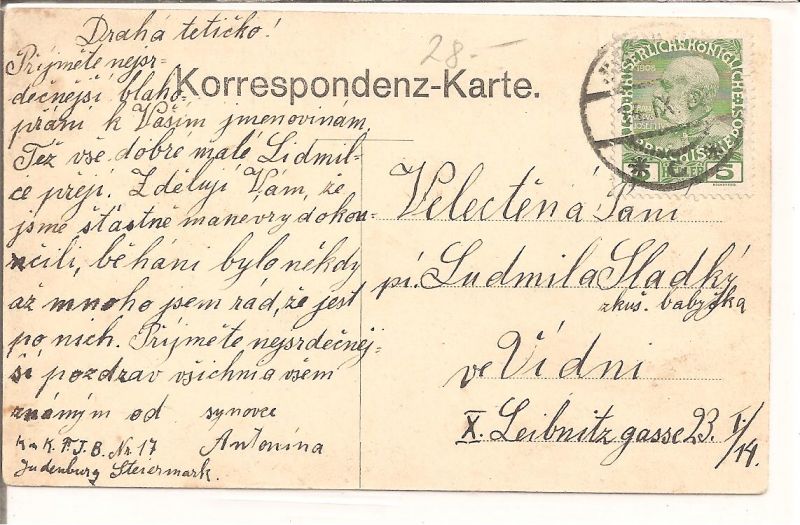 Drahá tetičko!
Přijměte nejsr-
dečnější blaho-
přání k Vašim jmenovinám,
Též vse dobré malé Lidmil-
ce přeji. Zděluji Vám, že
jsme šťástně manevry dokon-
nčili, běhání bylo někdy
až mnoho jsem rád, že jest
po nich. Přijměte nejsrdečněj-
ší pozdrav všichni a všem
známým od synovce
Antonína
K u K. F. J. B. Nr. 17
Judenburg Steiermark.
28.—
Korrespondenz-Karte.
1908
5 HELLER 5
Velectěná Paní
pí. Ludmila Sladký
zkuš. babyčka
ve Vídni
X. Leibnitzgasse 23. I/14.